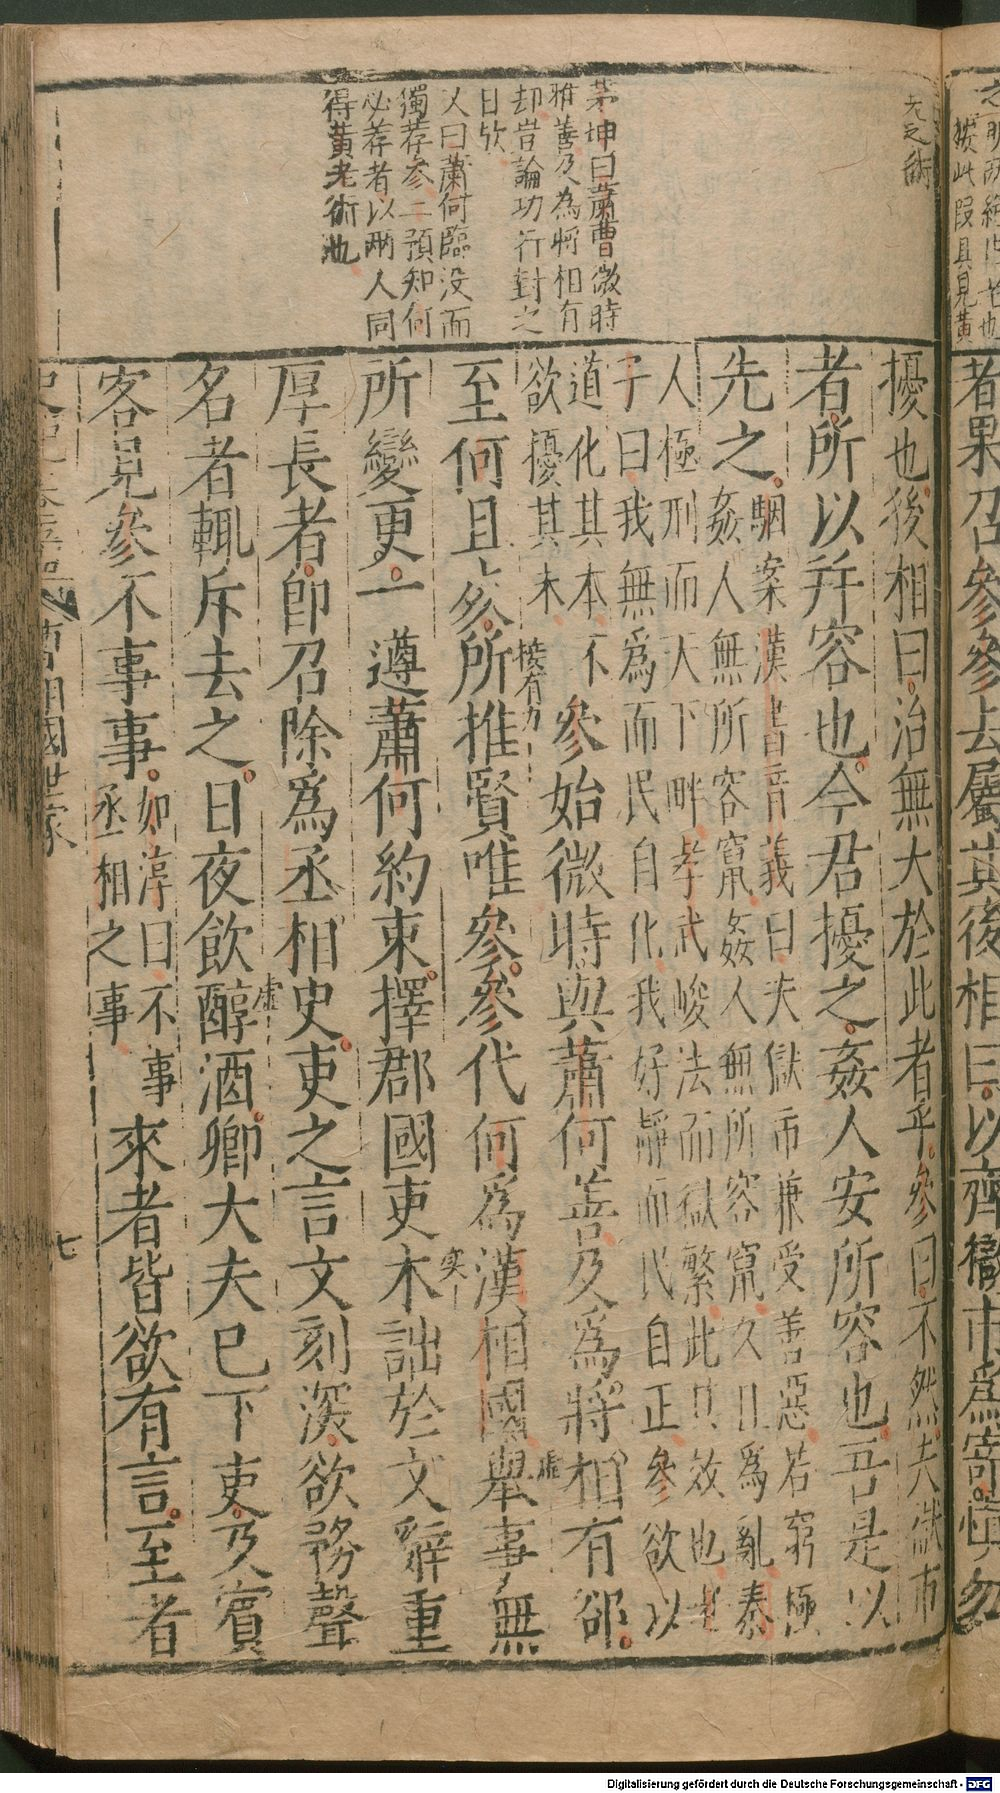 之術所
按此段具見黃
者果召參參去屬其後相曰以齊獄市爲寄慎勿
老之術
茅坤曰蕭曹微時
雅善及為將相有
却豈論功行封之
日欤
又曰蕭何臨没而
獨荐參二預知何
必荐者以兩人同
得黃老術也
擾也後相曰治無大於此者乎參曰不然夫獄市
者所以幷容也今君擾之姦人安所容也吾是以
先之
駰案漢書音義曰夫獄市兼受善惡若窮極
姦人無所容竄姦人無所容竄久且爲亂秦
人極刑而天下畔孝武峻法而獄繁此其效也老
子曰我無爲而民自化我好靜而民自正參欲以
道化其本不
欲擾其末
參始微時與蕭何善及爲將相有郤
至何且死所推賢唯參參代何爲漢相國舉事無
接有力
虛
所變更一遵蕭何約束擇郡國吏木詘於文辭重
实
厚長者卽召除爲丞相史吏之言文刻深欲務聲
名者輒斥去之日夜飲醇酒卿大夫已下吏及賓
虛
客見參不事事
如淳曰不事
丞相之事
來者皆欲有言至者
曹相國世家
七
Digitalisierung gefördert durch die Deutsche Forschungsgemeinschaft - DFG